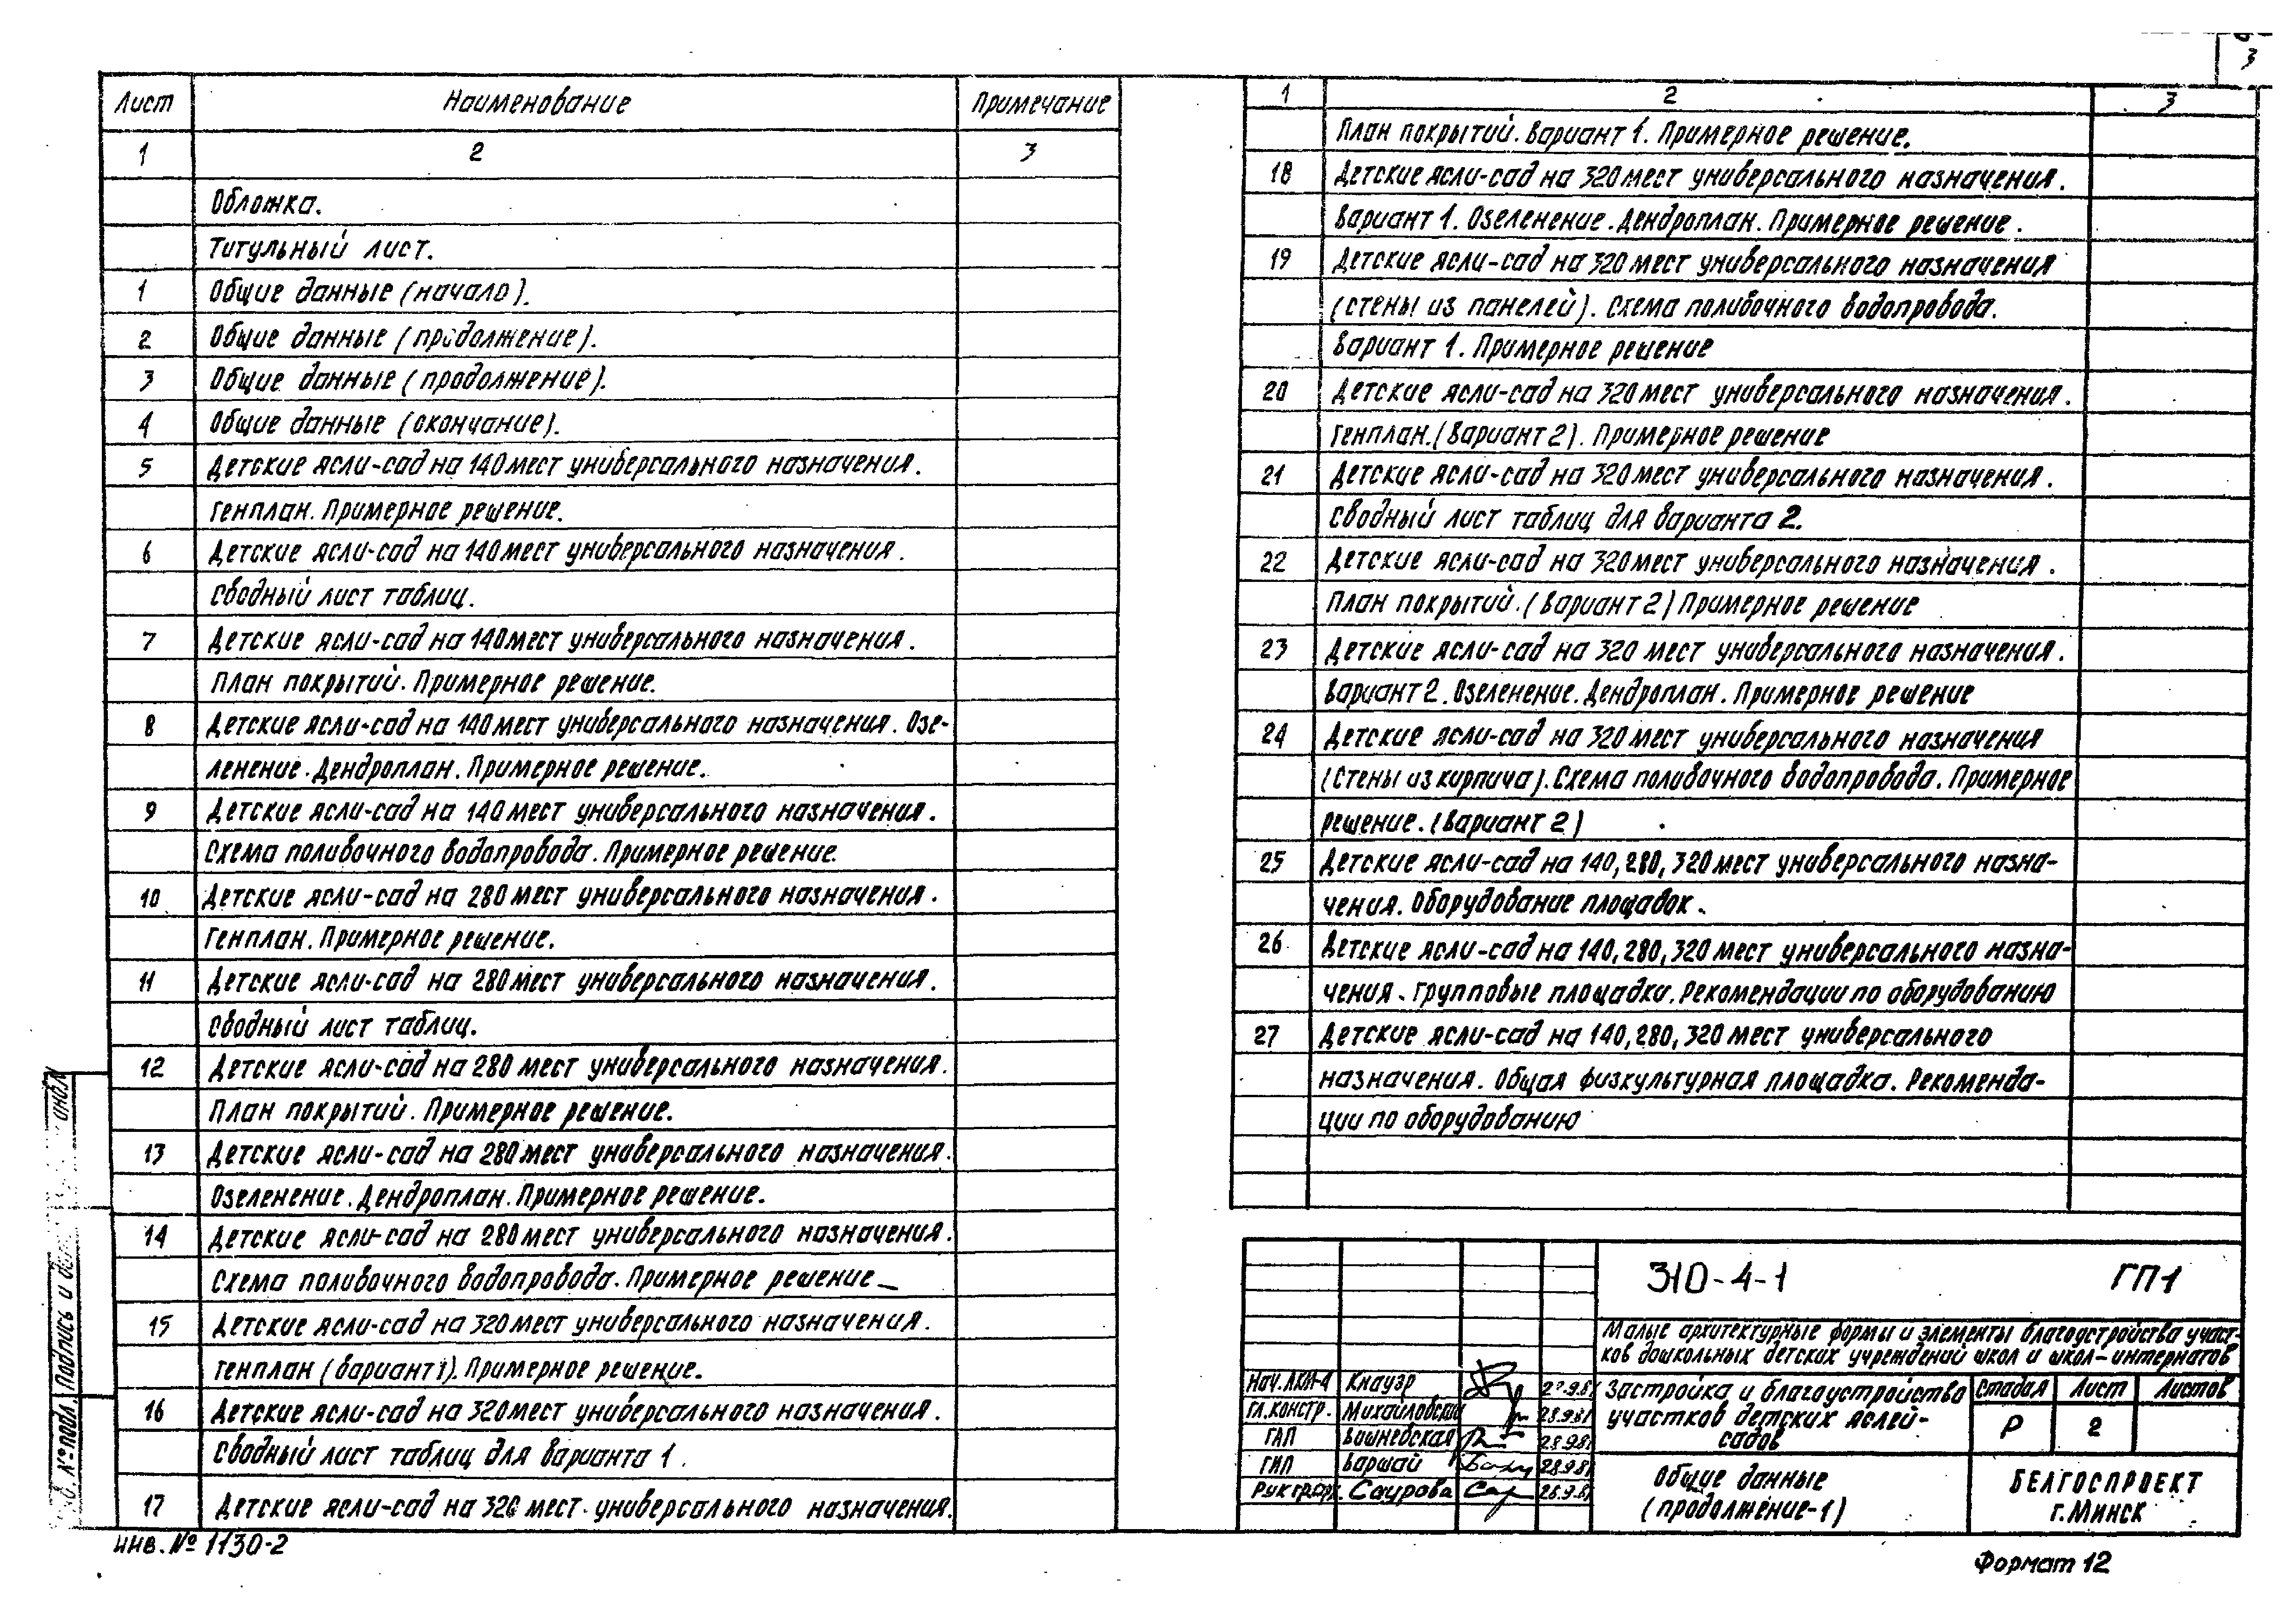 3
Лист Наименование Примечание
1 2 3
Обложка.
Титульный лист.
1 Общие данные (начало).
2 Общие данные (продолжение).
3 Общие данные (продолжение).
4 Общие данные (окончание).
5 Детские ясли-сад на 140 мест универсального назначения.
Генплан. Примерное решение.
6 Детские ясли-сад на 140 мест универсального назначения.
Сводный лист таблиц.
7 Детские ясли-сад на 140 мест универсального назначения.
План покрытий. Примерное решение.
8 Детские ясли-сад на 140 мест универсального назначения. Озе-
ленение. Дендроплан. Примерное решение.
9 Детские ясли-сад на 140 мест универсального назначения.
Схема поливочного водопровода. Примерное решение.
10 Детские ясли-сад на 280 мест универсального назначения.
Генплан. Примерное решение.
11 Детские ясли-сад на 280 мест универсального назначения.
Сводный лист таблиц.
12 Детские ясли-сад на 280 мест универсального назначения.
План покрытий. Примерное решение.
13 Детские ясли-сад на 280 мест универсального назначения.
Озеленение. Дендроплан. Примерное решение.
14 Детские ясли-сад на 280 мест универсального назначения.
Схема поливочного водопровода. Примерное решение
15 Детские ясли-сад на 320 мест универсального назначения.
Генплан (вариант 1). Примерное решение.
16 Детские ясли-сад на 320 мест универсального назначения.
Сводный лист таблиц для варианта 1.
17 Детские ясли-сад на 320 мест универсального назначения.
инв. № 1130-2
Подпись и
№ подл.
1 2 3
План покрытий. Вариант 1. Примерное решение.
18 Детские ясли-сад на 320 мест универсального назначения.
Вариант 1. Озеленение. Дендроплан. Примерное решение.
19 Детские ясли-сад на 320 мест универсального назначения
(стены из панелей). Схема поливочного водопровода.
Вариант 1. Примерное решение
20 Детские ясли-сад на 320 мест универсального назначения.
Генплан. (Вариант 2). Примерное решение
21 Детские ясли-сад на 320 мест универсального назначения.
Сводный лист таблиц для варианта 2.
22 Детские ясли-сад на 320 мест универсального назначения.
План покрытий. (Вариант 2) Примерное решение
23 Детские ясли-сад на 320 мест универсального назначения.
Вариант 2. Озеленение. Дендроплан. Примерное решение
24 Детские ясли-сад на 320 мест универсального назначения
(Стены из кирпича). Схема поливочного водопровода. Примерное
решение. (Вариант 2)
25 Детские ясли-сад на 140, 280, 320 мест универсального назна-
чения. Оборудование площадок.
26 Детские ясли-сад на 140, 280, 320 мест универсального назна-
чения. Групповые площадки. Рекомендации по оборудованию
27 Детские ясли-сад на 140, 280, 320 мест универсального
назначения. Общая физкультурная площадка. Рекоменда-
ции по оборудованию
310-4-1 ГП1
Малые архитектурные формы и элементы благоустройства участ-
ков дошкольных детских учреждений школ и школ-интернатов
Нач. АКМ-4 Кнауэр
Гл. констр. Михайловский 28.9.81
ГАП Вишневская 28.9.81
ГИП Варшай 28.9.81
Рук гр. Саурова 28.9.81
Застройка и благоустройство
участков детских яслей-
садов
Стадия Лист Листов
Р 2
Общие данные
(продолжение-1)
БЕЛГОСПРОЕКТ
г. Минск
Формат 12